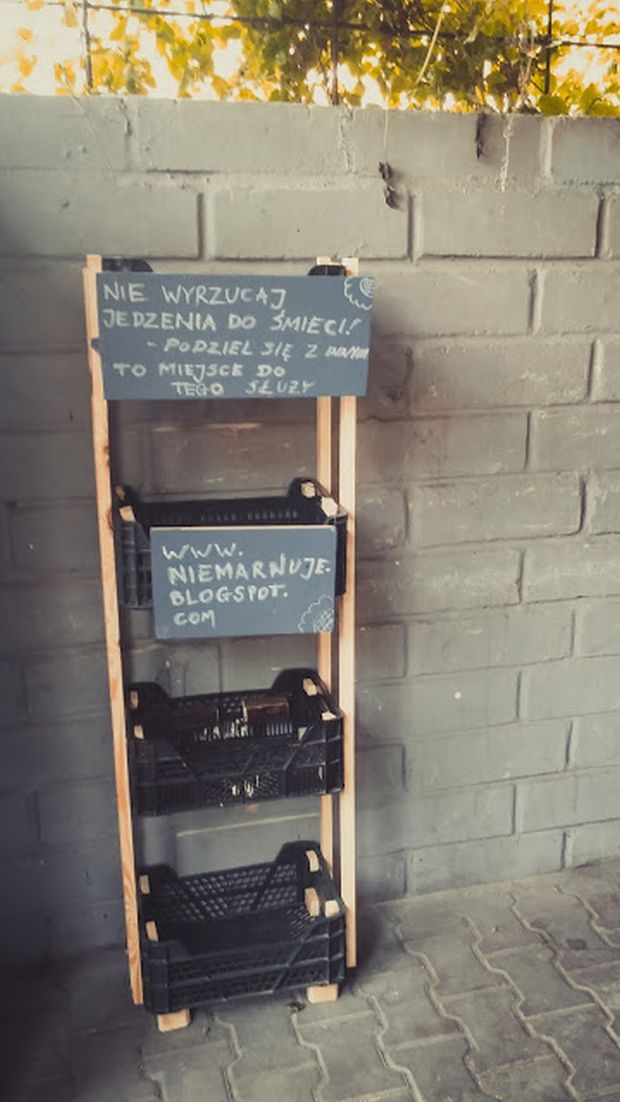 NIE WYRZUCAJ
JEDZENIA DO ŚMIECI!
- PODZIEL SIĘ Z INNYMI
TO MIEJSCE DO
TEGO SŁUŻY
WWW.
NIEMARNUJE.
BLOGSPOT.
COM